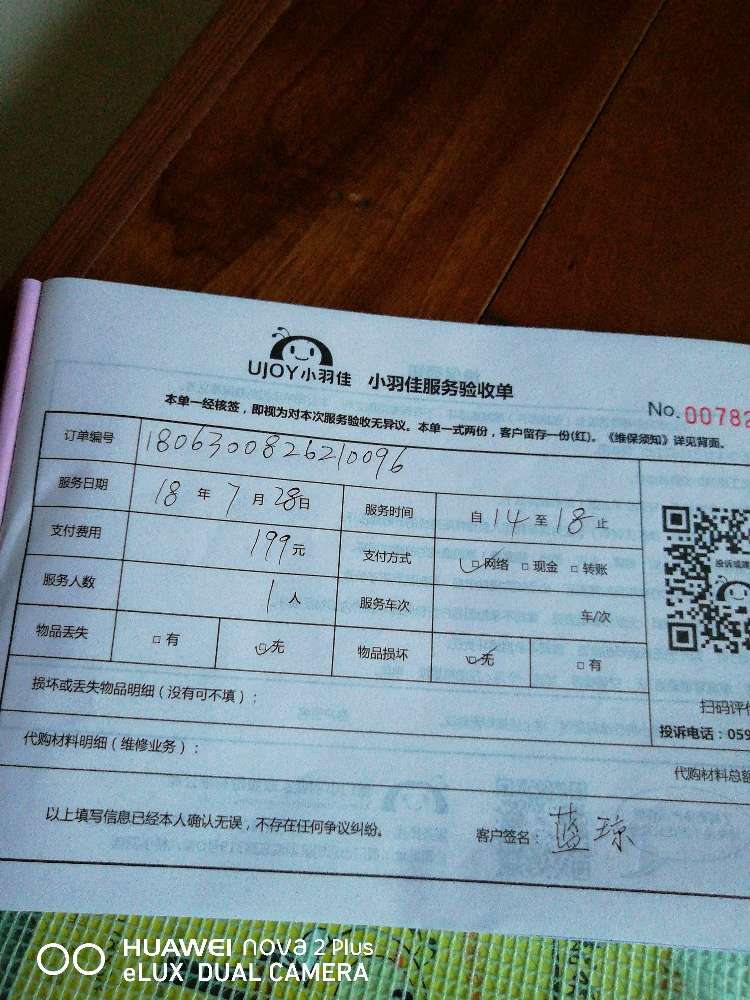 UJOY小羽佳 小羽佳服务验收单
No. 00782
本单一经核签，即视为对本次服务验收无异议。本单一式两份，客户留存一份(红)。《维保须知》详见背面。
订单编号 1806300826210096
服务日期 18 年 7 月 28 日 服务时间 自 14 至 18 止
支付费用 199元 支付方式 ☑网络 □现金 □转账
服务人数 1人 服务车次 车/次
物品丢失 □有 ☑无 物品损坏 ☑无 □有
损坏或丢失物品明细（没有可不填）：
扫码评价
投诉电话：059
代购材料明细（维修业务）：
代购材料总额
以上填写信息已经本人确认无误，不存在任何争议纠纷。
客户签名：蓝琼
HUAWEI nova 2 Plus
eLUX DUAL CAMERA